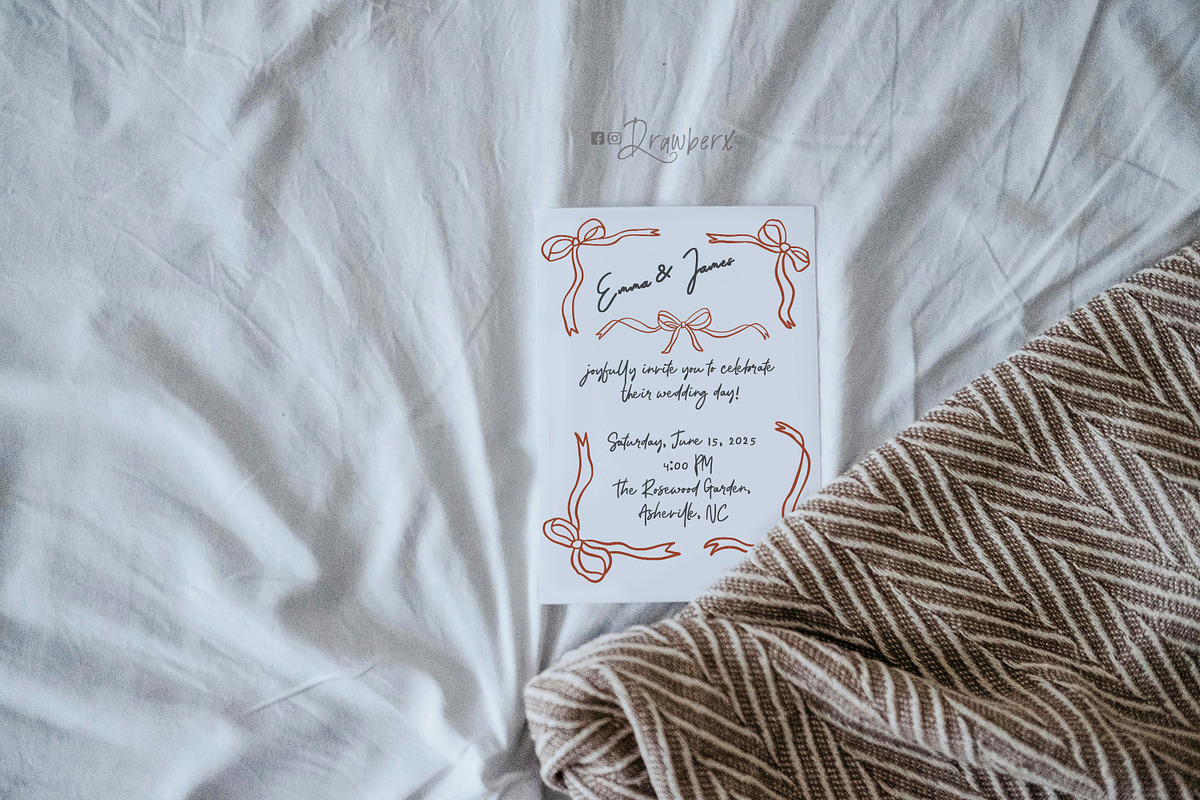 Drawberx
Emma & James
joyfully invite you to celebrate
their wedding day!
Saturday, June 15, 2025
4:00 PM
The Rosewood Garden,
Asheville, NC